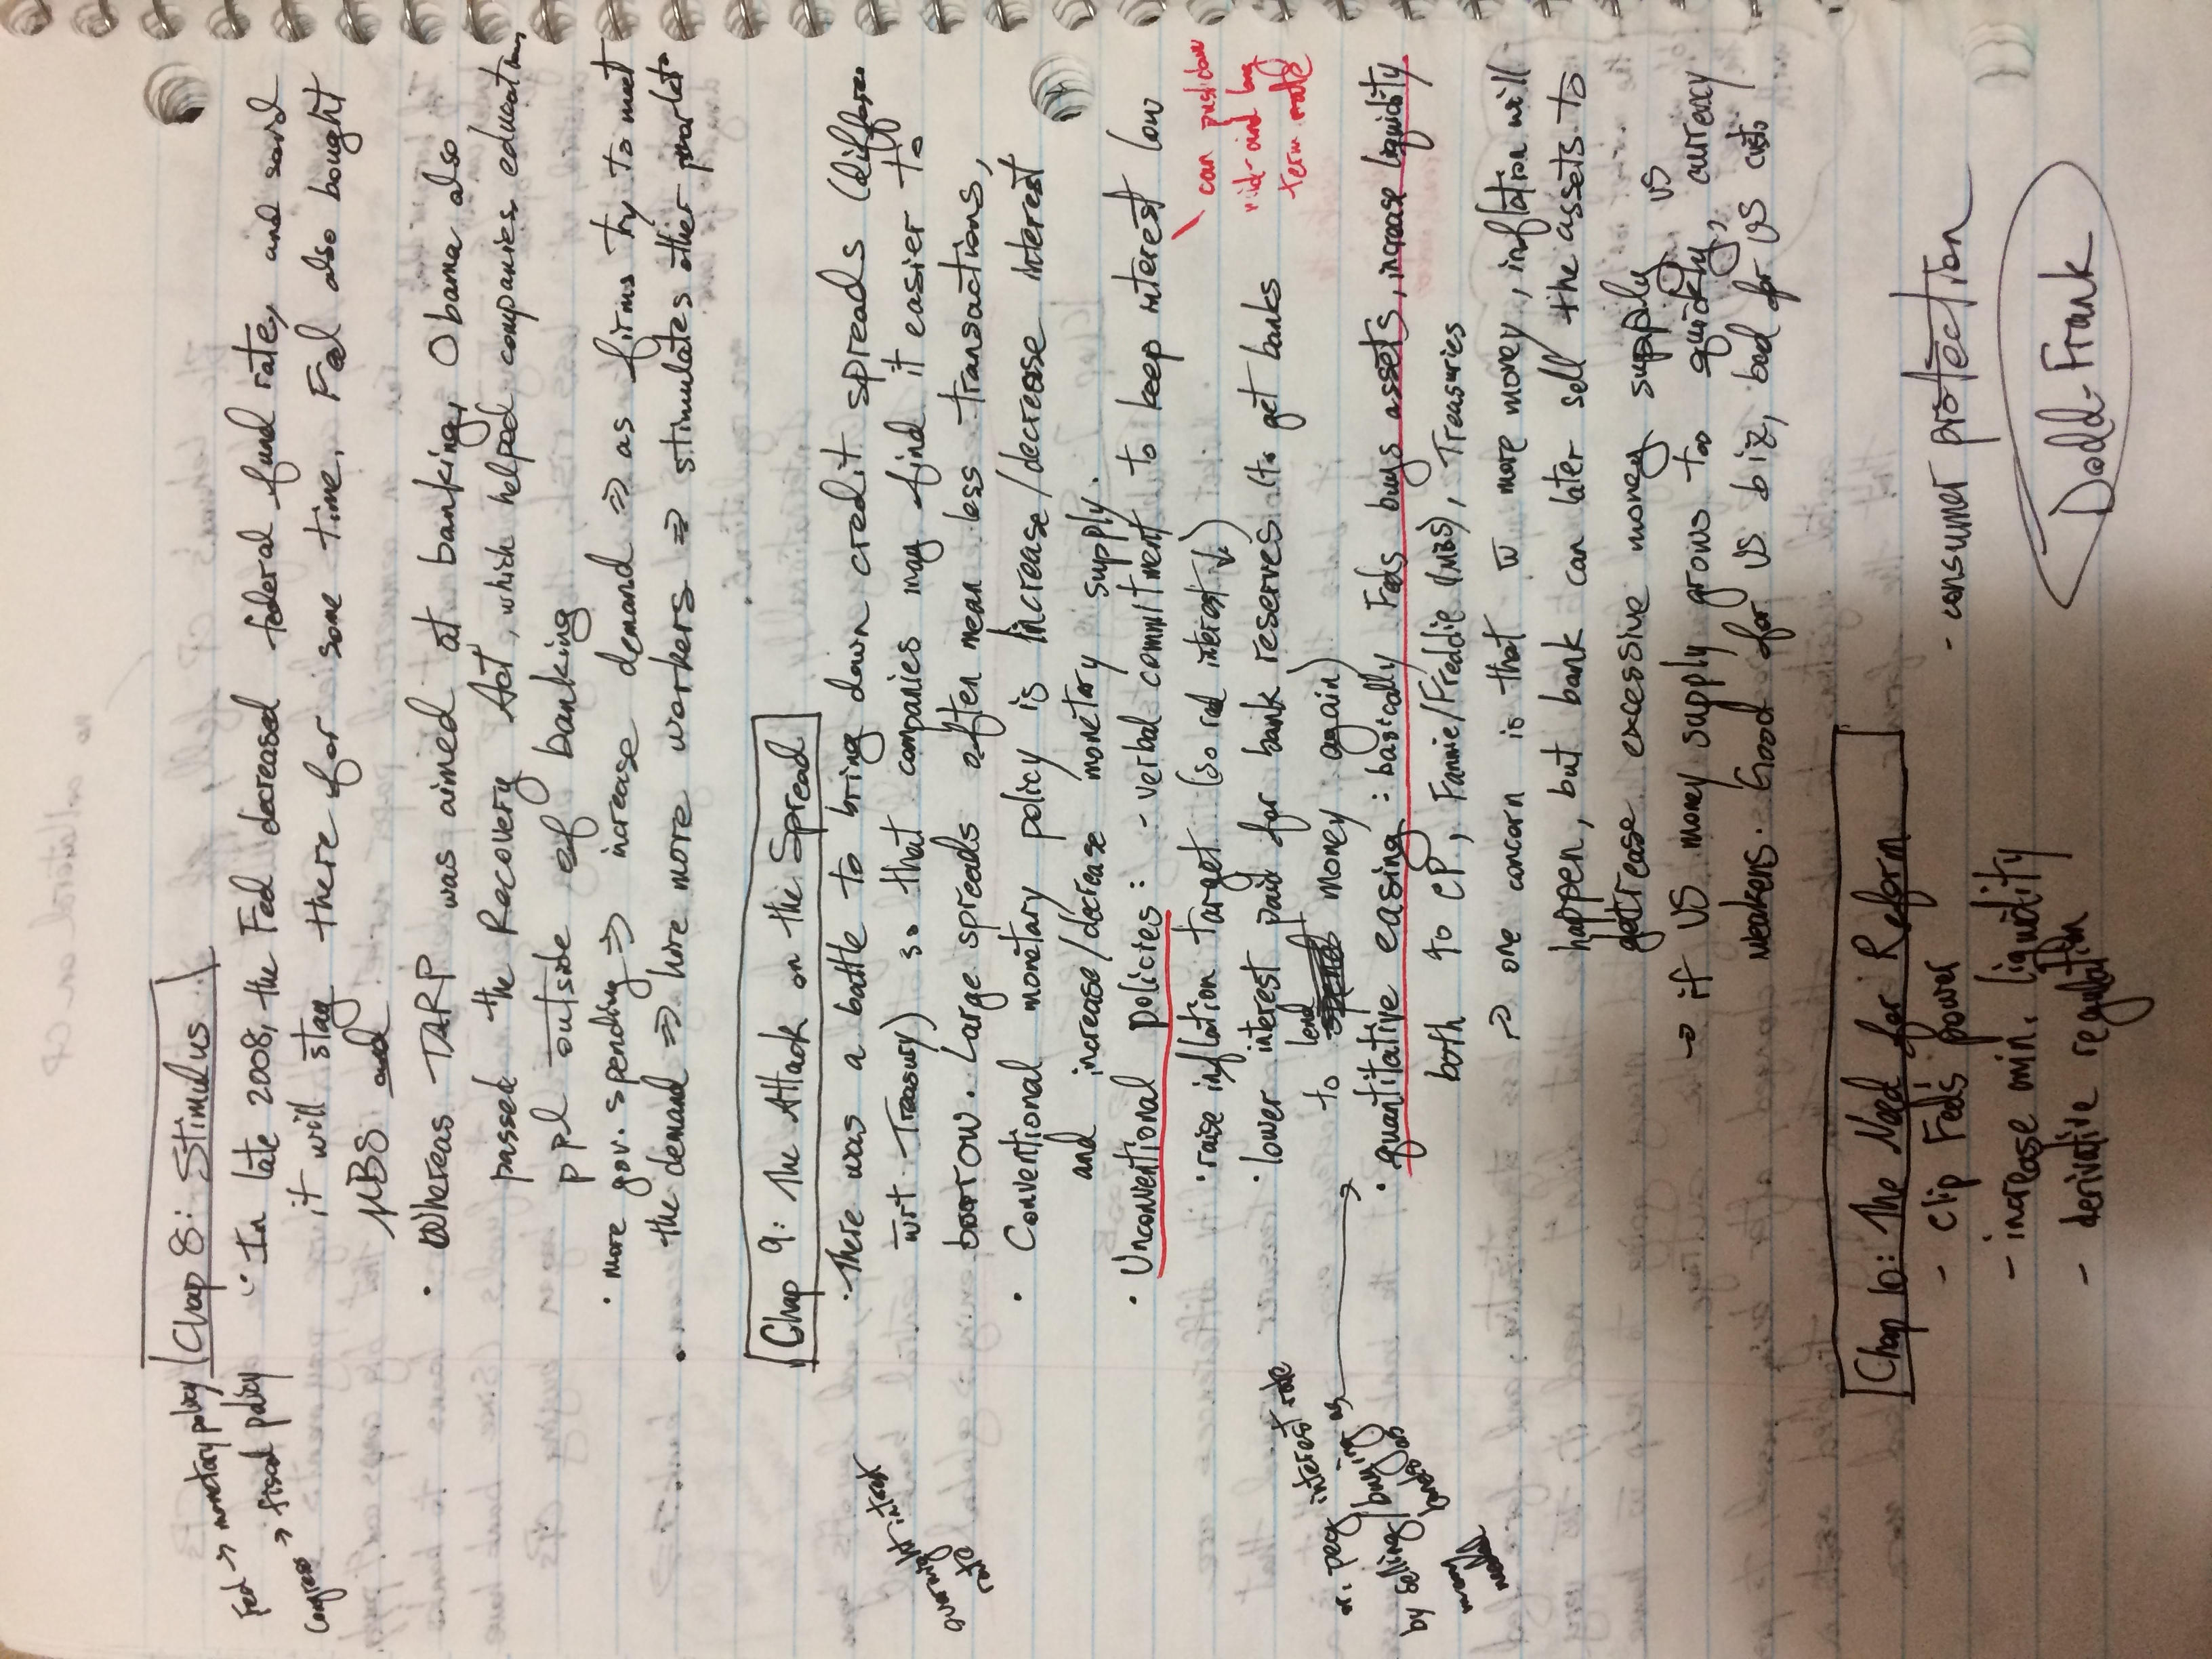 Chap 8: Stimulus
Fed → monetary policy
Congress → fiscal policy
· In late 2008, the Fed decreased federal fund rate, and said
it will stay there for some time. Fed also bought
MBS and
· Whereas TARP was aimed at banking, Obama also
passed the Recovery Act, which helped companies, education,
ppl outside of banking
· more gov. spending ⇒ increase demand ⇒ as firms try to meet
the demand ⇒ hire more workers ⇒ stimulates other market
Chap 9: The Attack on the Spread
· There was a battle to bring down credit spreads (differen
wrt Treasury) so that companies may find it easier to
borrow. Large spreads often mean less transactions,
overnight interest
rate
· Conventional monetary policy is increase/decrease interest
and increase/decrease monetary supply.
· Unconventional policies: - verbal commitment to keep interest low
can push down
mid- and long
term rate
· raise inflation target (so real interest ↓)
· lower interest paid for bank reserves (to get banks
to lend money again)
or, peg interest rate
by selling/buying as
many bonds as
needed
· quantitative easing: basically Feds buys assets, increase liquidity
both to CP, Fannie/Freddie (MBS), Treasuries
→ one concern is that w more money, inflation will
happen, but bank can later sell the assets to
decrease excessive money supply
→ if US money supply grows too quickly, US currency
weakens. Good for US biz, bad for US
Chap 10: The Need for Reform
- clip Fed's power
- consumer protection
- increase min. liquidity
- derivative regulation
Dodd-Frank